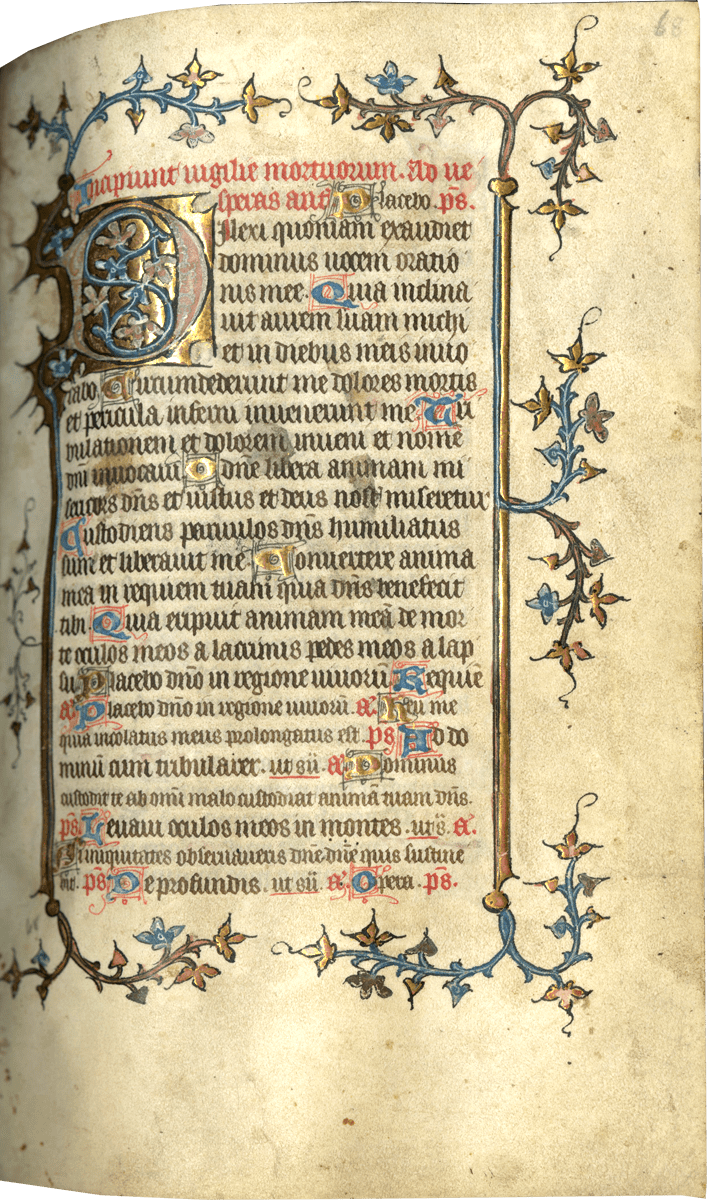 68
Incipiunt vigilie mortuorum. Ad ve
speras añt. Placebo. p̄s.
Dilexi quoniam exaudiet
dominus vocem oratio
nis mee. Quia inclina
vit aurem suam michi
et in diebus meis invo
cabo. Circumdederunt me dolores mortis
et p̲ericula inferni invenerunt me. Tri
bulationem et dolorem inveni et nomē
dnī invocavi. O dn̄e libera animam mi
sericors dn̄s et iustus et deus nost̄ miseretur
Custodiens parvulos dn̄s humiliatus
sum et liberavit me. Convertere anima
mea in requiem tuam quia dn̄s benefecit
tibi. Quia eripuit animam meā de mor
te oculos meos a lacrimis pedes meos a lap
su. Placebo dn̄o in regione vivorū. Requiē
a. Placebo dn̄o in regione vivorū. a. Heu me
quia incolatus meus prolongatus est. p̄s. Ad do
minū cum tribularer. ut sū. a. Dominus
custodit te ab omni malo custodiat animā tuam dn̄s.
p̄s. Levavi oculos meos in montes. ut s̄. a.
Si iniquitates observaveris dn̄e dn̄e quis sustine
bit. p̄s. De profundis. ut sū. a. Opera. p̄s.